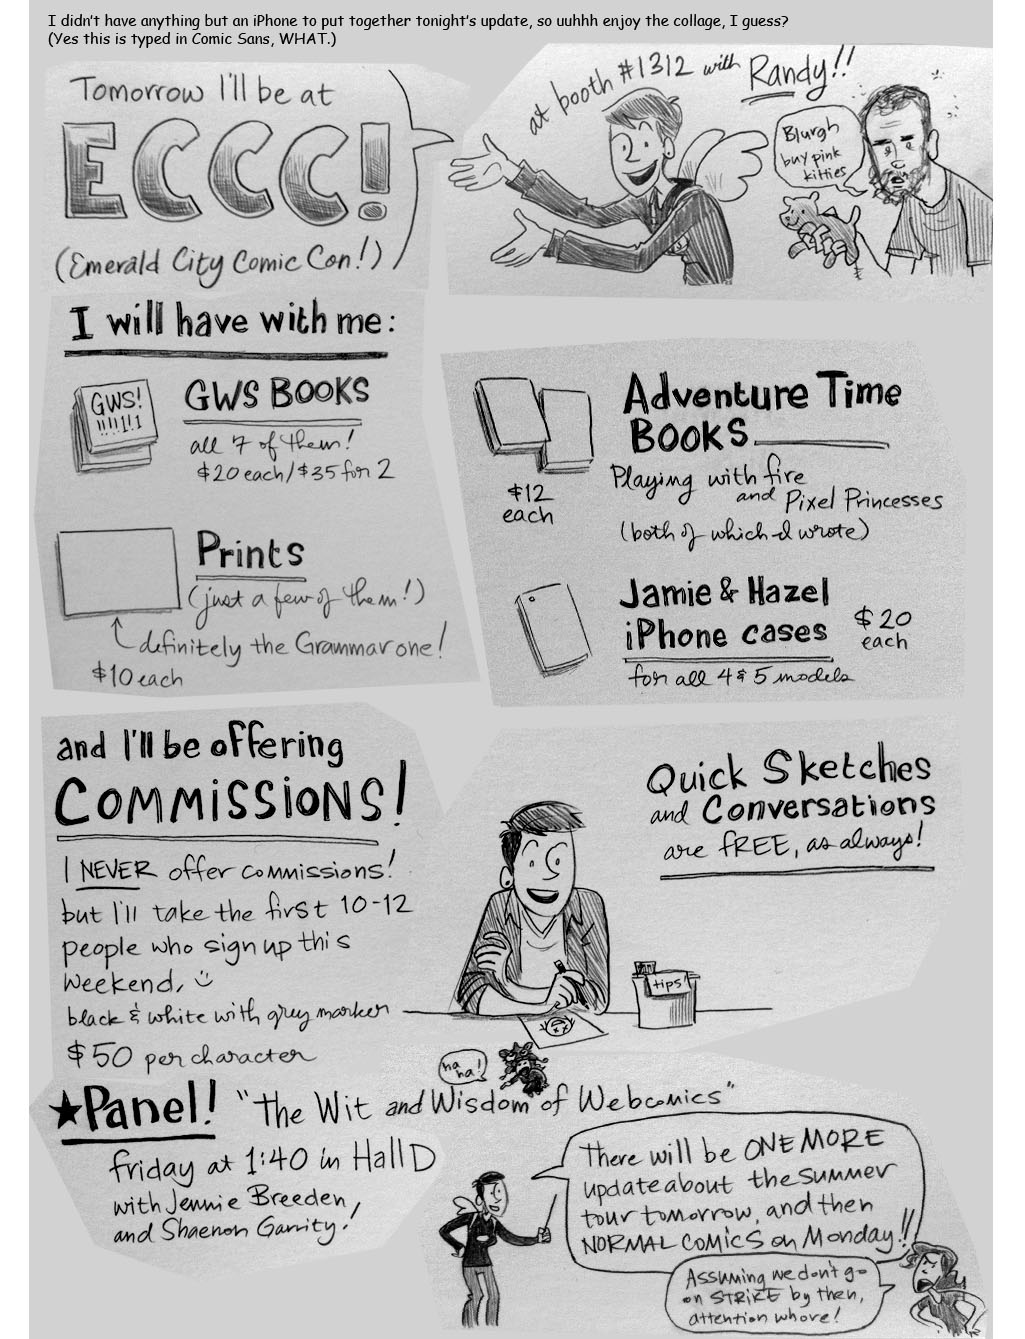 I didn't have anything but an iPhone to put together tonight's update, so uuhhh enjoy the collage, I guess?
(Yes this is typed in Comic Sans, WHAT.)
Tomorrow I'll be at
ECCC!
(Emerald City Comic Con!)
at booth #1312 with Randy!!
Blurgh
buy pink
kitties
I will have with me:
GWS!
!!!!1!1
GWS BOOKS
all 7 of them!
$20 each/$35 for 2
Prints
(just a few of them!)
definitely the Grammar one!
$10 each
Adventure Time
BOOKS
$12
each
Playing with fire
and Pixel Princesses
(both of which I wrote)
Jamie & Hazel
iPhone cases
$20
each
for all 4 & 5 models
and I'll be offering
COMMISSIONS!
I NEVER offer commissions!
but I'll take the first 10-12
people who sign up this
weekend.
black & white with grey marker
$50 per character
Quick Sketches
and Conversations
are FREE, as always!
tips!
ha
ha!
★Panel! "The Wit and Wisdom of Webcomics"
friday at 1:40 in Hall D
with Jennie Breeden,
and Shaenon Garrity!
There will be ONE MORE
update about the summer
tour tomorrow, and then
NORMAL COMICS on Monday!!
Assuming we don't go
on STRIKE by then,
attention whore!